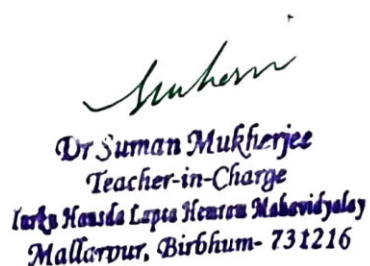 Dr Suman Mukherjee
Teacher-in-Charge
Turku Hansda Lapsa Hemram Mahavidyalay
Mallarpur, Birbhum- 731216